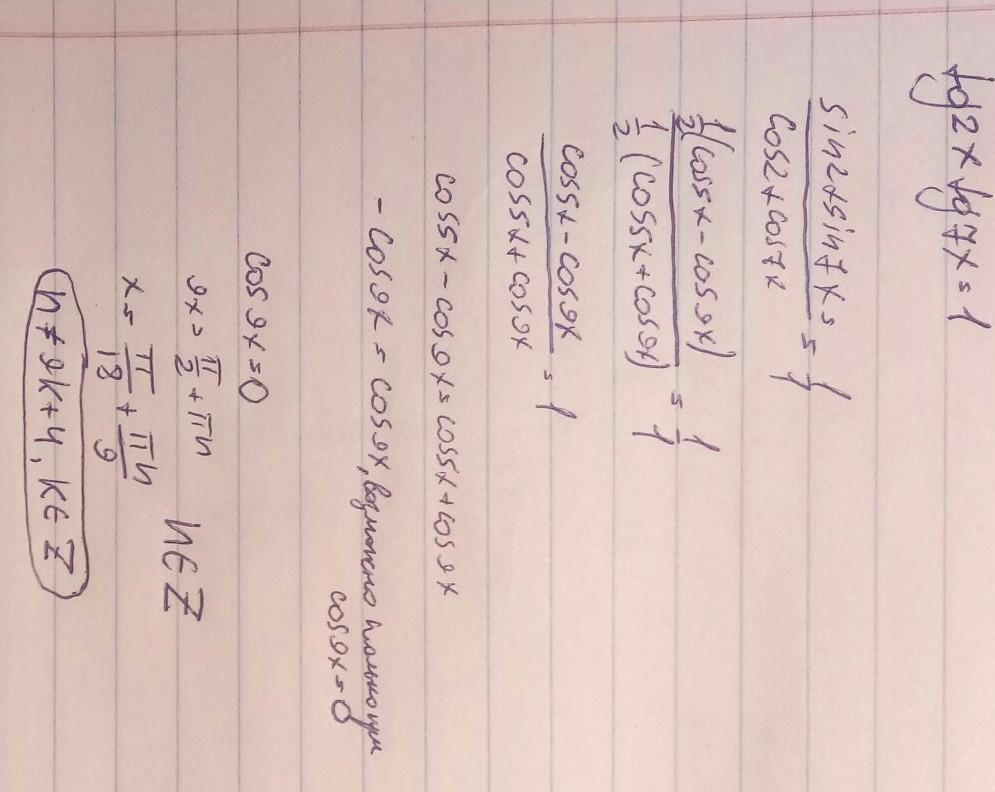 tg2x tg7x = 1
sin2x sin7x / cos2x cos7x = 1/1
1/2(cos5x - cos9x) / 1/2(cos5x + cos9x) = 1/1
cos5x - cos9x / cos5x + cos9x = 1
cos5x - cos9x = cos5x + cos9x
- cos9x = cos9x, возможно только при
cos9x = 0
cos9x = 0
9x = π/2 + πn
n ∈ Z
x = π/18 + πn/9
n ≠ 9k + 4, k ∈ Z